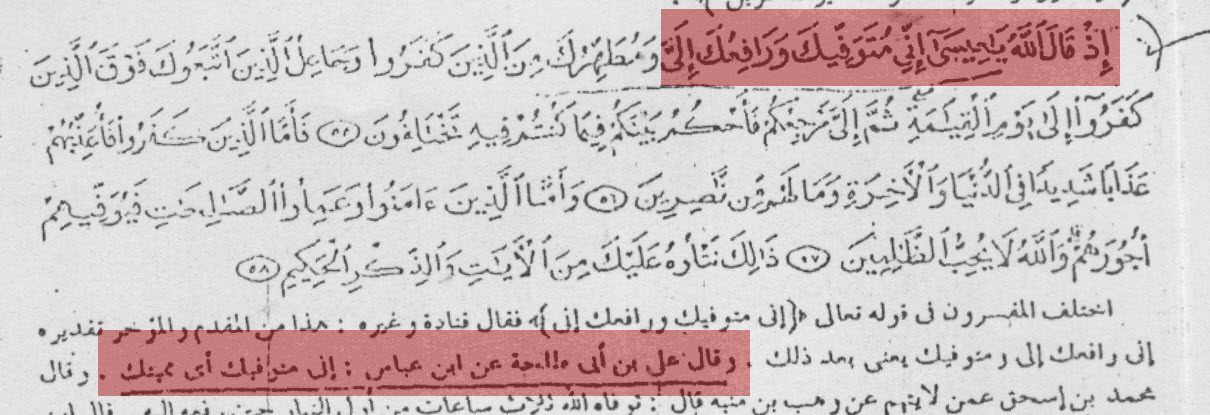 إِذْ قَالَ ٱللَّهُ يَـٰعِيسَىٰٓ إِنِّى مُتَوَفِّيكَ وَرَافِعُكَ إِلَىَّ وَمُطَهِّرُكَ مِنَ ٱلَّذِينَ كَفَرُوا۟ وَجَاعِلُ ٱلَّذِينَ ٱتَّبَعُوكَ فَوْقَ ٱلَّذِينَ
كَفَرُوٓا۟ إِلَىٰ يَوْمِ ٱلْقِيَـٰمَةِ ۖ ثُمَّ إِلَىَّ مَرْجِعُكُمْ فَأَحْكُمُ بَيْنَكُمْ فِيمَا كُنتُمْ فِيهِ تَخْتَلِفُونَ فَأَمَّا ٱلَّذِينَ كَفَرُوا۟ فَأُعَذِّبُهُمْ
عَذَابًا شَدِيدًا فِى ٱلدُّنْيَا وَٱلْأَخِرَةِ وَمَا لَهُم مِّن نَّـٰصِرِينَ ٥٦ وَأَمَّا ٱلَّذِينَ ءَامَنُوا۟ وَعَمِلُوا۟ ٱلصَّـٰلِحَـٰتِ فَيُوَفِّيهِمْ
أُجُورَهُمْ ۗ وَٱللَّهُ لَا يُحِبُّ ٱلظَّـٰلِمِينَ ٥٧ ذَٰلِكَ نَتْلُوهُ عَلَيْكَ مِنَ ٱلْأَيَـٰتِ وَٱلذِّكْرِ ٱلْحَكِيمِ ٥٨
اختلف المفسرون فى قوله تعالى ﴿إنى متوفيك ورافعك إلى﴾ فقال قتادة وغيره : هذا من المقدم والمؤخر تقديره
إنى رافعك إلى ومتوفيك يعنى بعد ذلك . وقال على بن أبى طلحة عن ابن عباس : إنى متوفيك أى مميتك . وقال
محمد بن إسحق عمن لا يتهم عن وهب بن منبه قال : توفاه الله ثلاث ساعات من أول النهار حين رفعه إليه